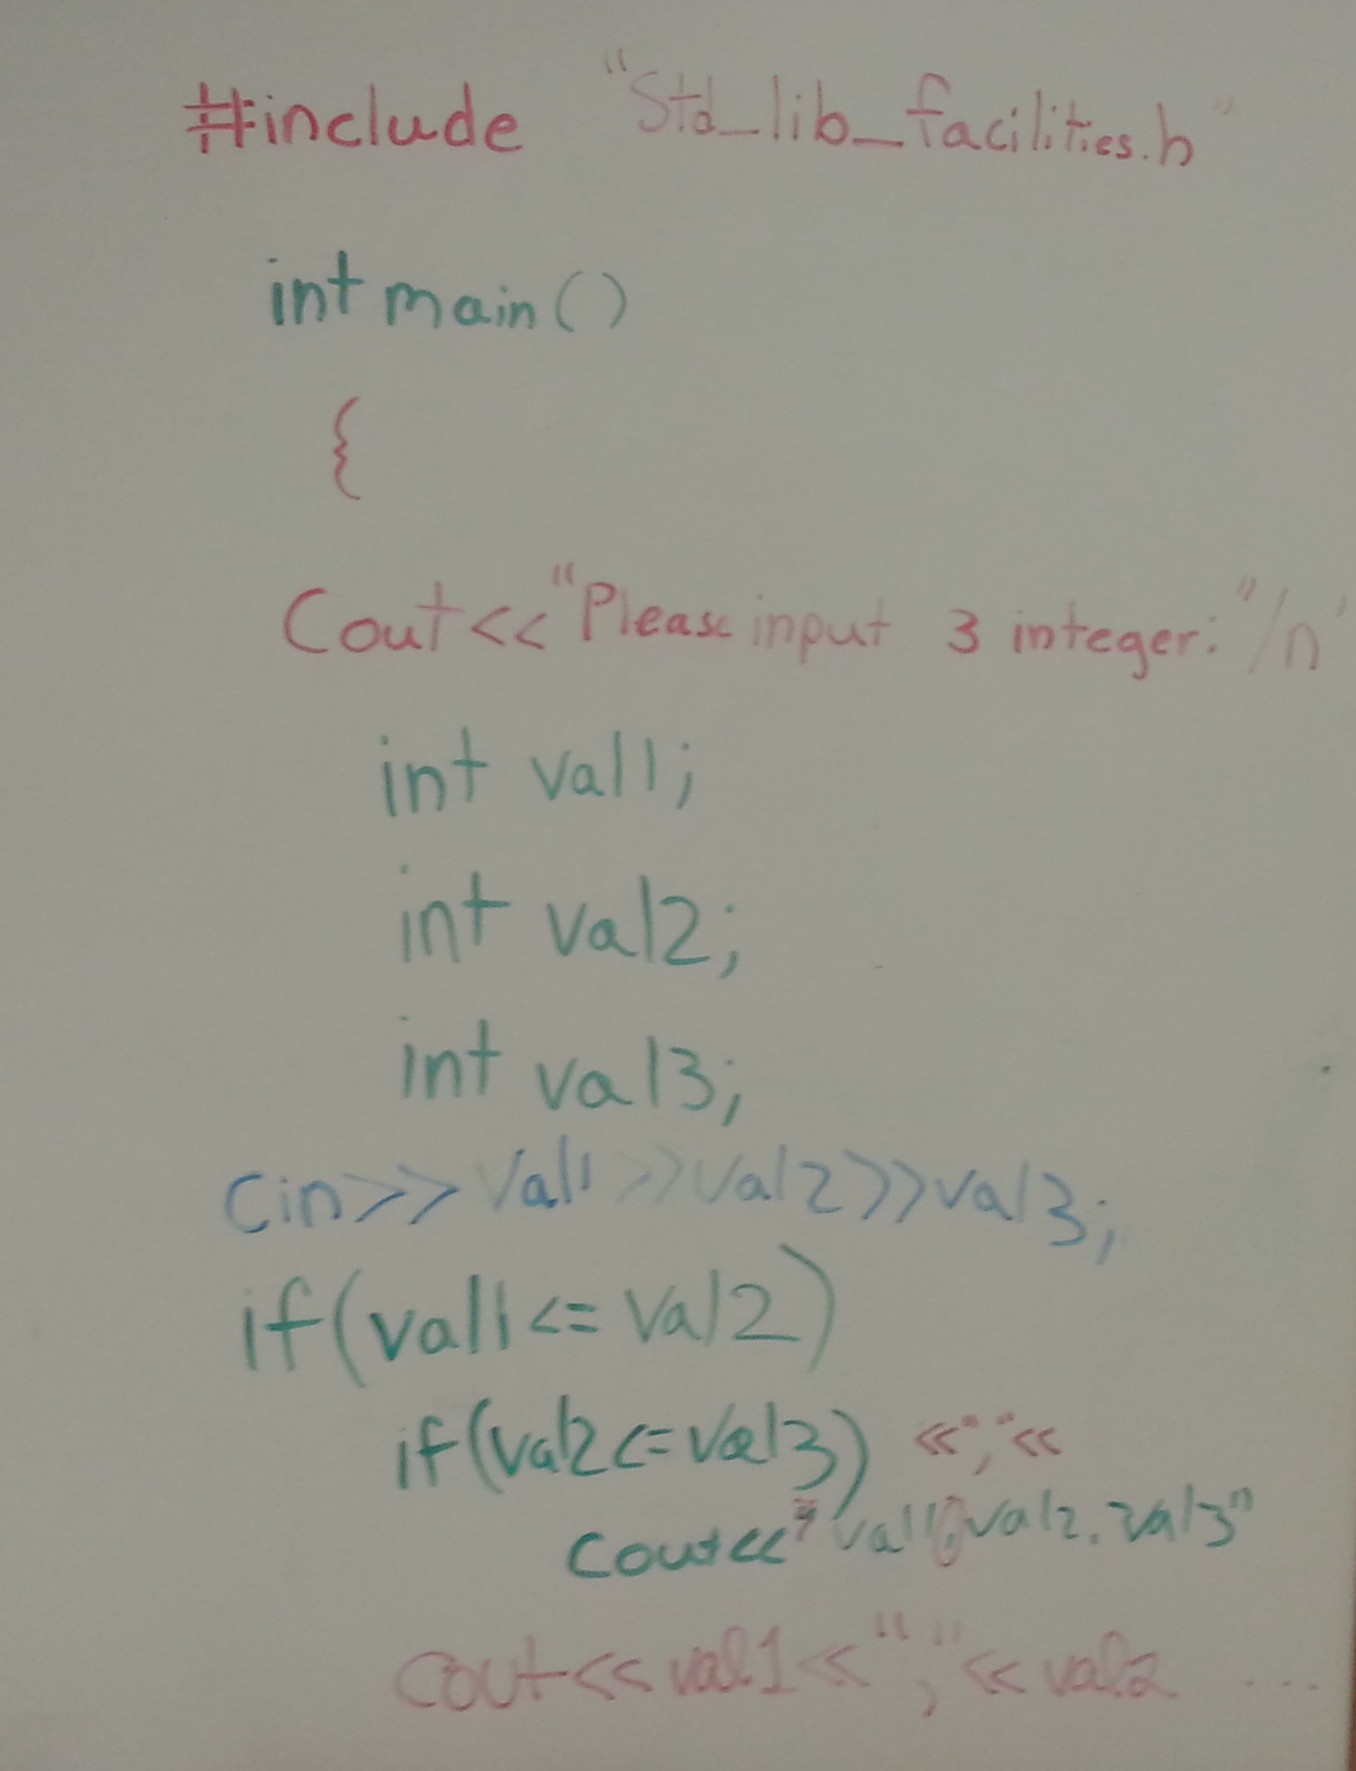 #include "Std_lib_facilities.h"
int main()
{
Cout<<"Please input 3 integer:"/n'
int val1;
int val2;
int val3;
Cin>>Val1>>Val2>>val3;
if(val1<=Val2)
if(val2<=Val3) <<","<<
Cout<<"val1,val2.val3"
Cout<<val1<<","<<val2 ...